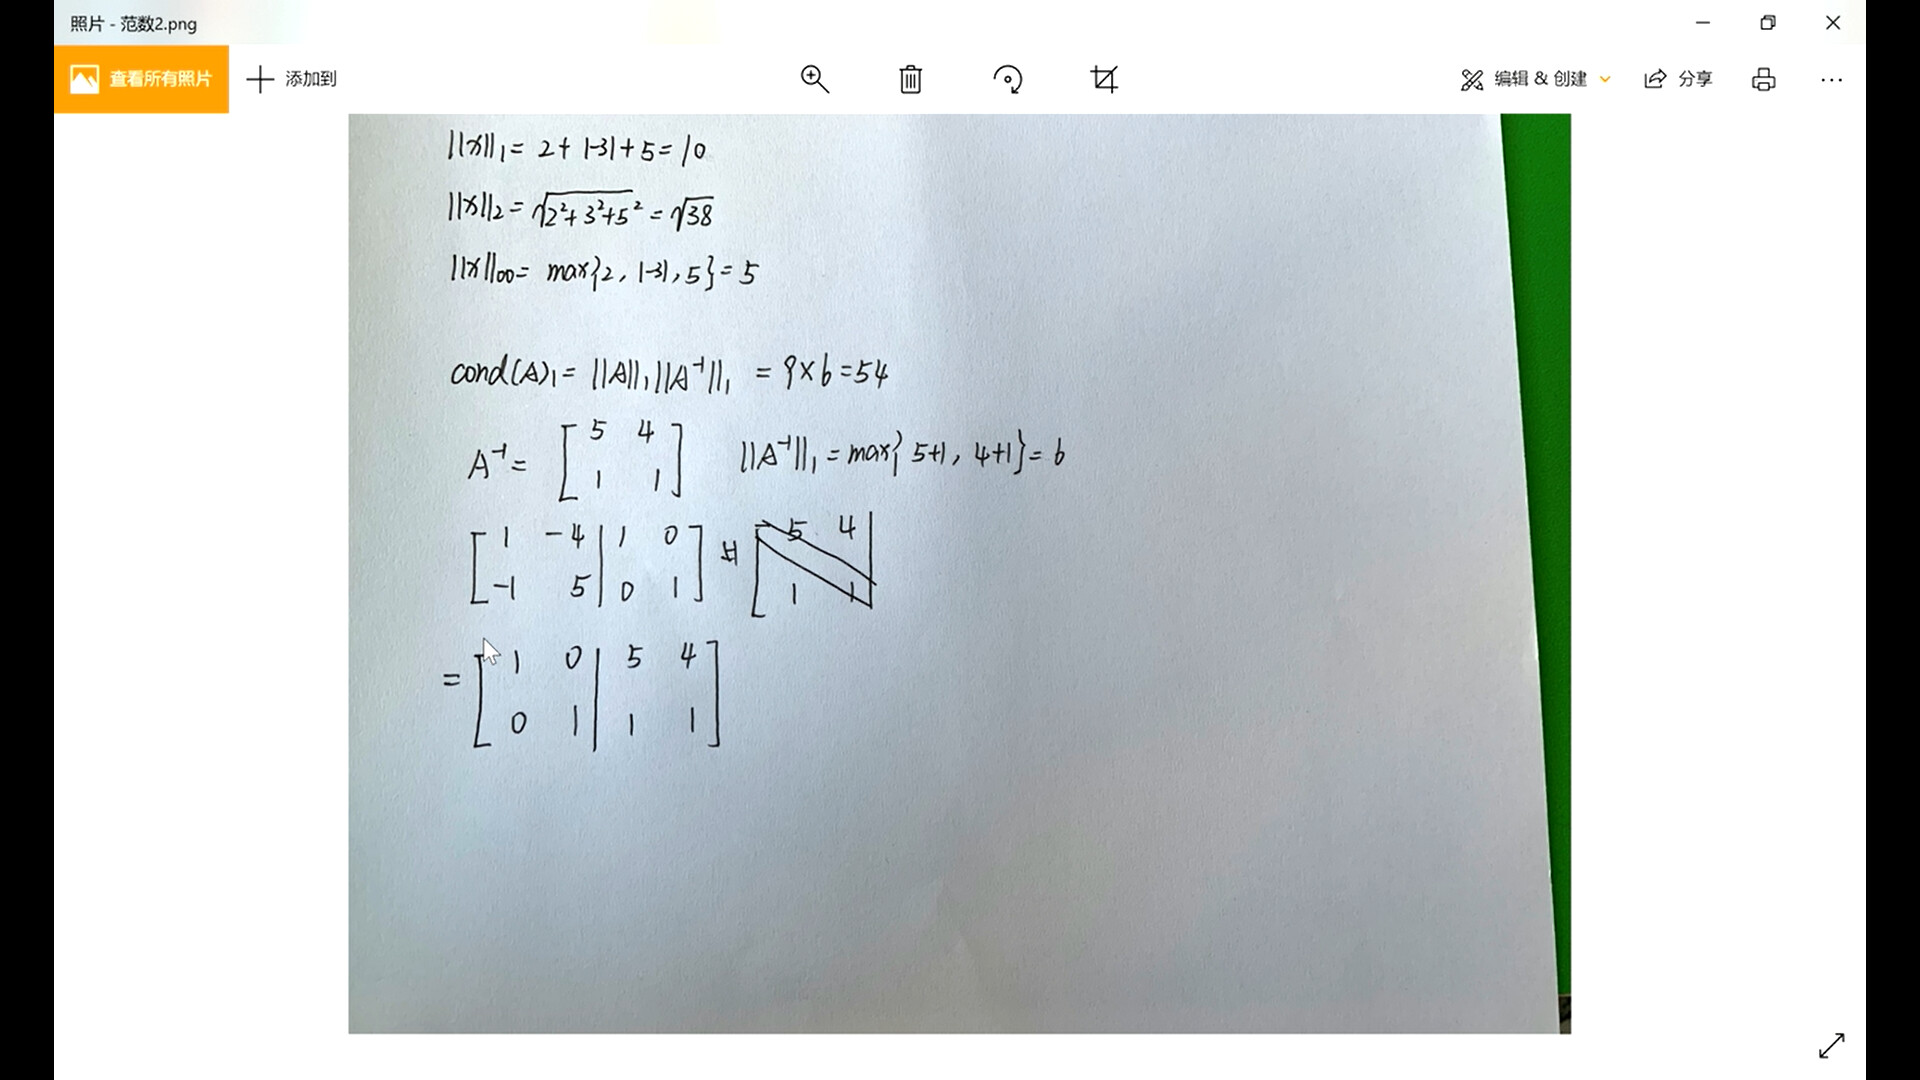 照片 - 范数2.png
查看所有照片 添加到 编辑 & 创建 分享
||x||₁ = 2 + |-3| + 5 = 10
||x||₂ = √(2²+3²+5²) = √38
||x||∞ = max{2, |-3|, 5} = 5
cond(A)₁ = ||A||₁||A⁻¹||₁ = 9×6 = 54
A⁻¹ = [5 4; 1 1] ||A⁻¹||₁ = max{5+1, 4+1} = 6
[1 -4 | 1 0; -1 5 | 0 1] [5 4; 1 1]
= [1 0 | 5 4; 0 1 | 1 1]